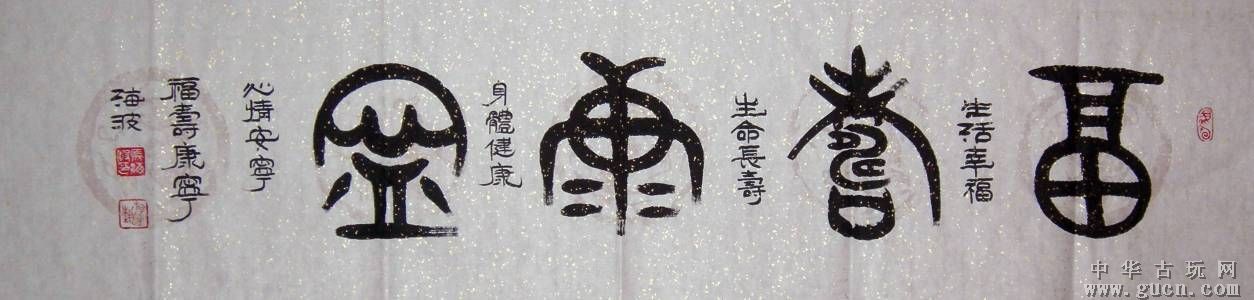 福
生活幸福
壽
生命長壽
康
身體健康
寧
心情安寧
福壽康寧
海波
中华古玩网
www.gucn.com